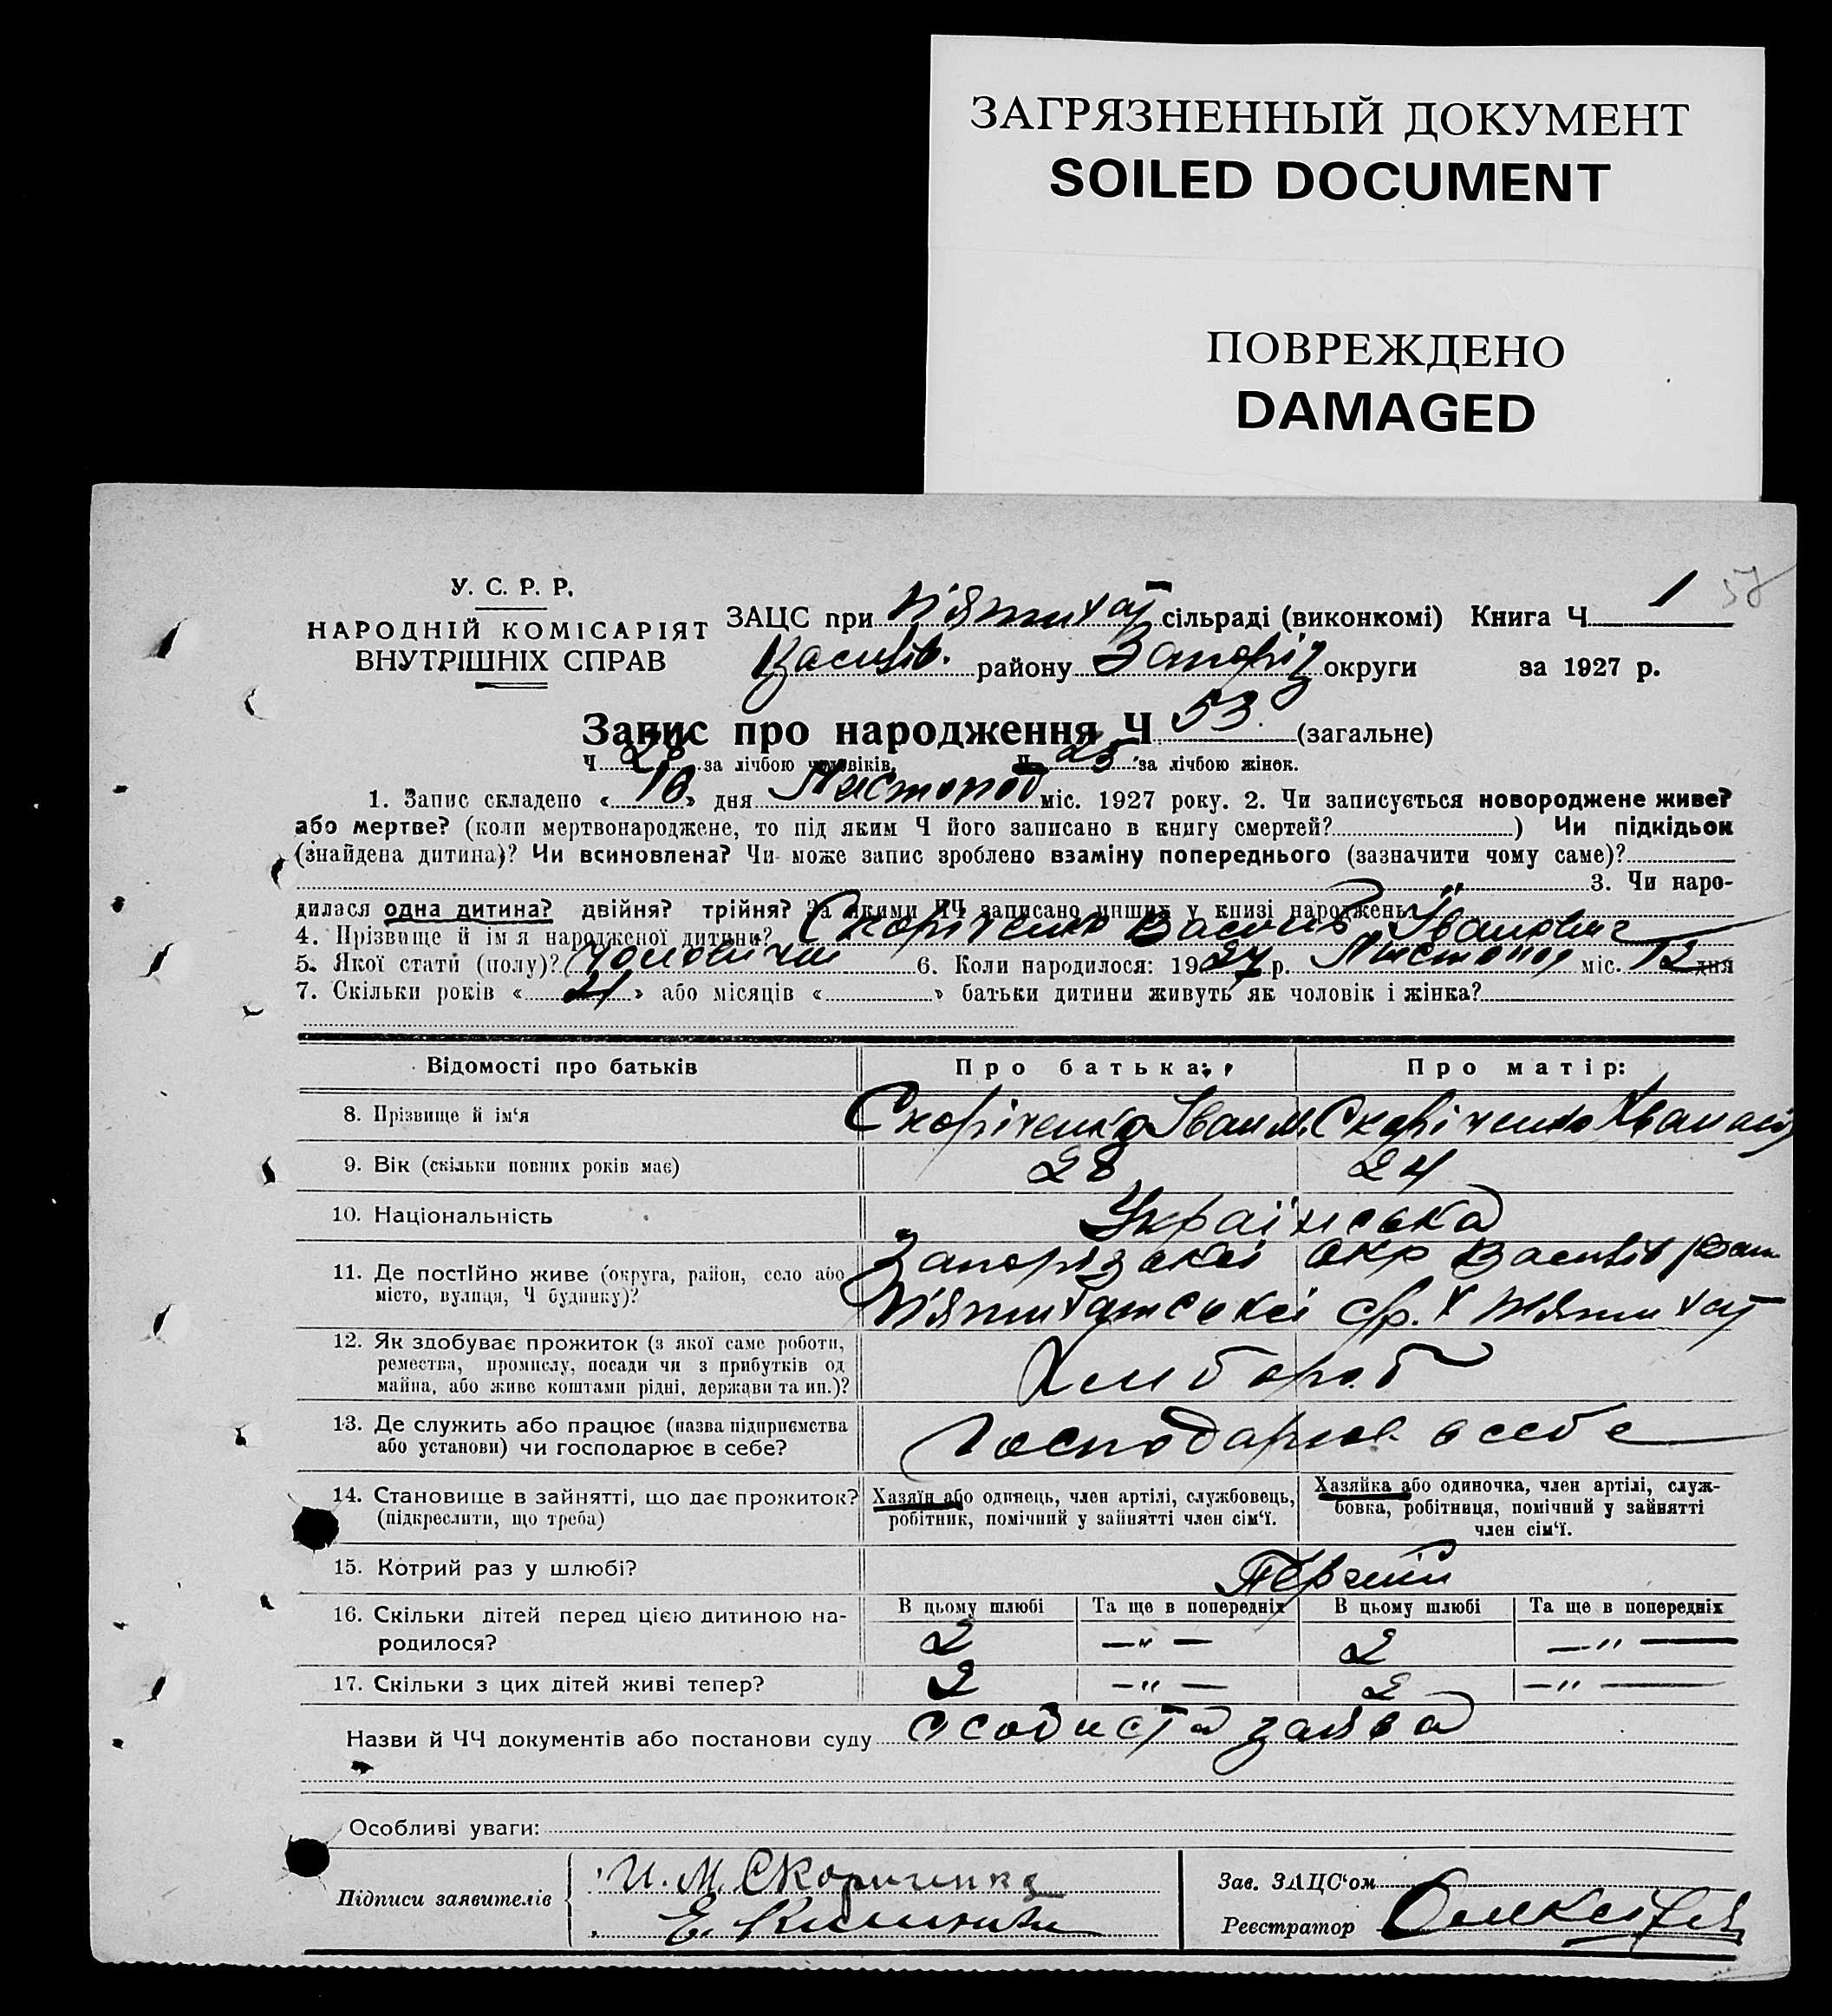 ЗАГРЯЗНЕННЫЙ ДОКУМЕНТ
SOILED DOCUMENT
ПОВРЕЖДЕНО
DAMAGED
У. С. Р. Р.
НАРОДНІЙ КОМІСАРІЯТ
ВНУТРІШНІХ СПРАВ
ЗАЦС при П'ятихат сільраді (виконкомі) Книга Ч 1 57
Василів. району Запоріз округи за 1927 р.
Запис про народження Ч 53. (загальне)
Ч. 28 за лічбою чоловіків. Ч. 25 за лічбою жінок.
1. Запис складено « 16 » дня Листопад міс. 1927 року. 2. Чи записується новороджене живе?
або мертве? (коли мертвонароджене, то під яким Ч його записано в книгу смертей? ) Чи підкідьок
(знайдена дитина)? Чи всиновлена? Чи може запис зроблено взаміну попереднього (зазначити чому саме)?
3. Чи наро-
дилася одна дитина? двійня? трійня? За якими ЧЧ записано инших у книзі народжень?
4. Прізвище й ім'я народженої дитини? Скоріченко Василь Іванович
5. Якої стати (полу)? Чоловічої 6. Коли народилося: 1927 р. Листопад міс. 12 дня
7. Скільки років « » або місяців « » батьки дитини живуть як чоловік і жінка?
Відомості про батьків Про батька: Про матір:
8. Прізвище й ім'я Скоріченко Іван М. Скоріченко
9. Вік (скільки повних років має) 28 24
10. Національність Українська
11. Де постійно живе (округа, район, село або Запорізької окр Василів район
місто, вулиця, Ч будинку)? П'ятихатської с/р. х П'ятихат
12. Як здобуває прожиток (з якої саме роботи,
ремества, промислу, посади чи з прибутків од Хлибороб
майна, або живе коштами рідні, держави та ин.)?
13. Де служить або працює (назва підприємства
або установи) чи господарює в себе? Господарює в себе
14. Становище в зайнятті, що дає прожиток? Хазяїн або одинець, член артілі, службовець, Хазяйка або одиночка, член артілі, служ-
(підкреслити, що треба) робітник, помічний у зайнятті член сім'ї. бовка, робітниця, помічний у зайнятті
член сім'ї.
15. Котрий раз у шлюбі? Перший
16. Скільки дітей перед цією дитиною на- В цьому шлюбі Та ще в попередніх В цьому шлюбі Та ще в попередніх
родилося? 2 —"— 2 —"—
17. Скільки з цих дітей живі тепер? 2 —"— 2 —"—
Назви й ЧЧ документів або постанови суду особиста заява
Особливі уваги:
Підписи заявителів И. М. Скориченко
Е.
Зав. ЗАЦС'ом
Реєстратор